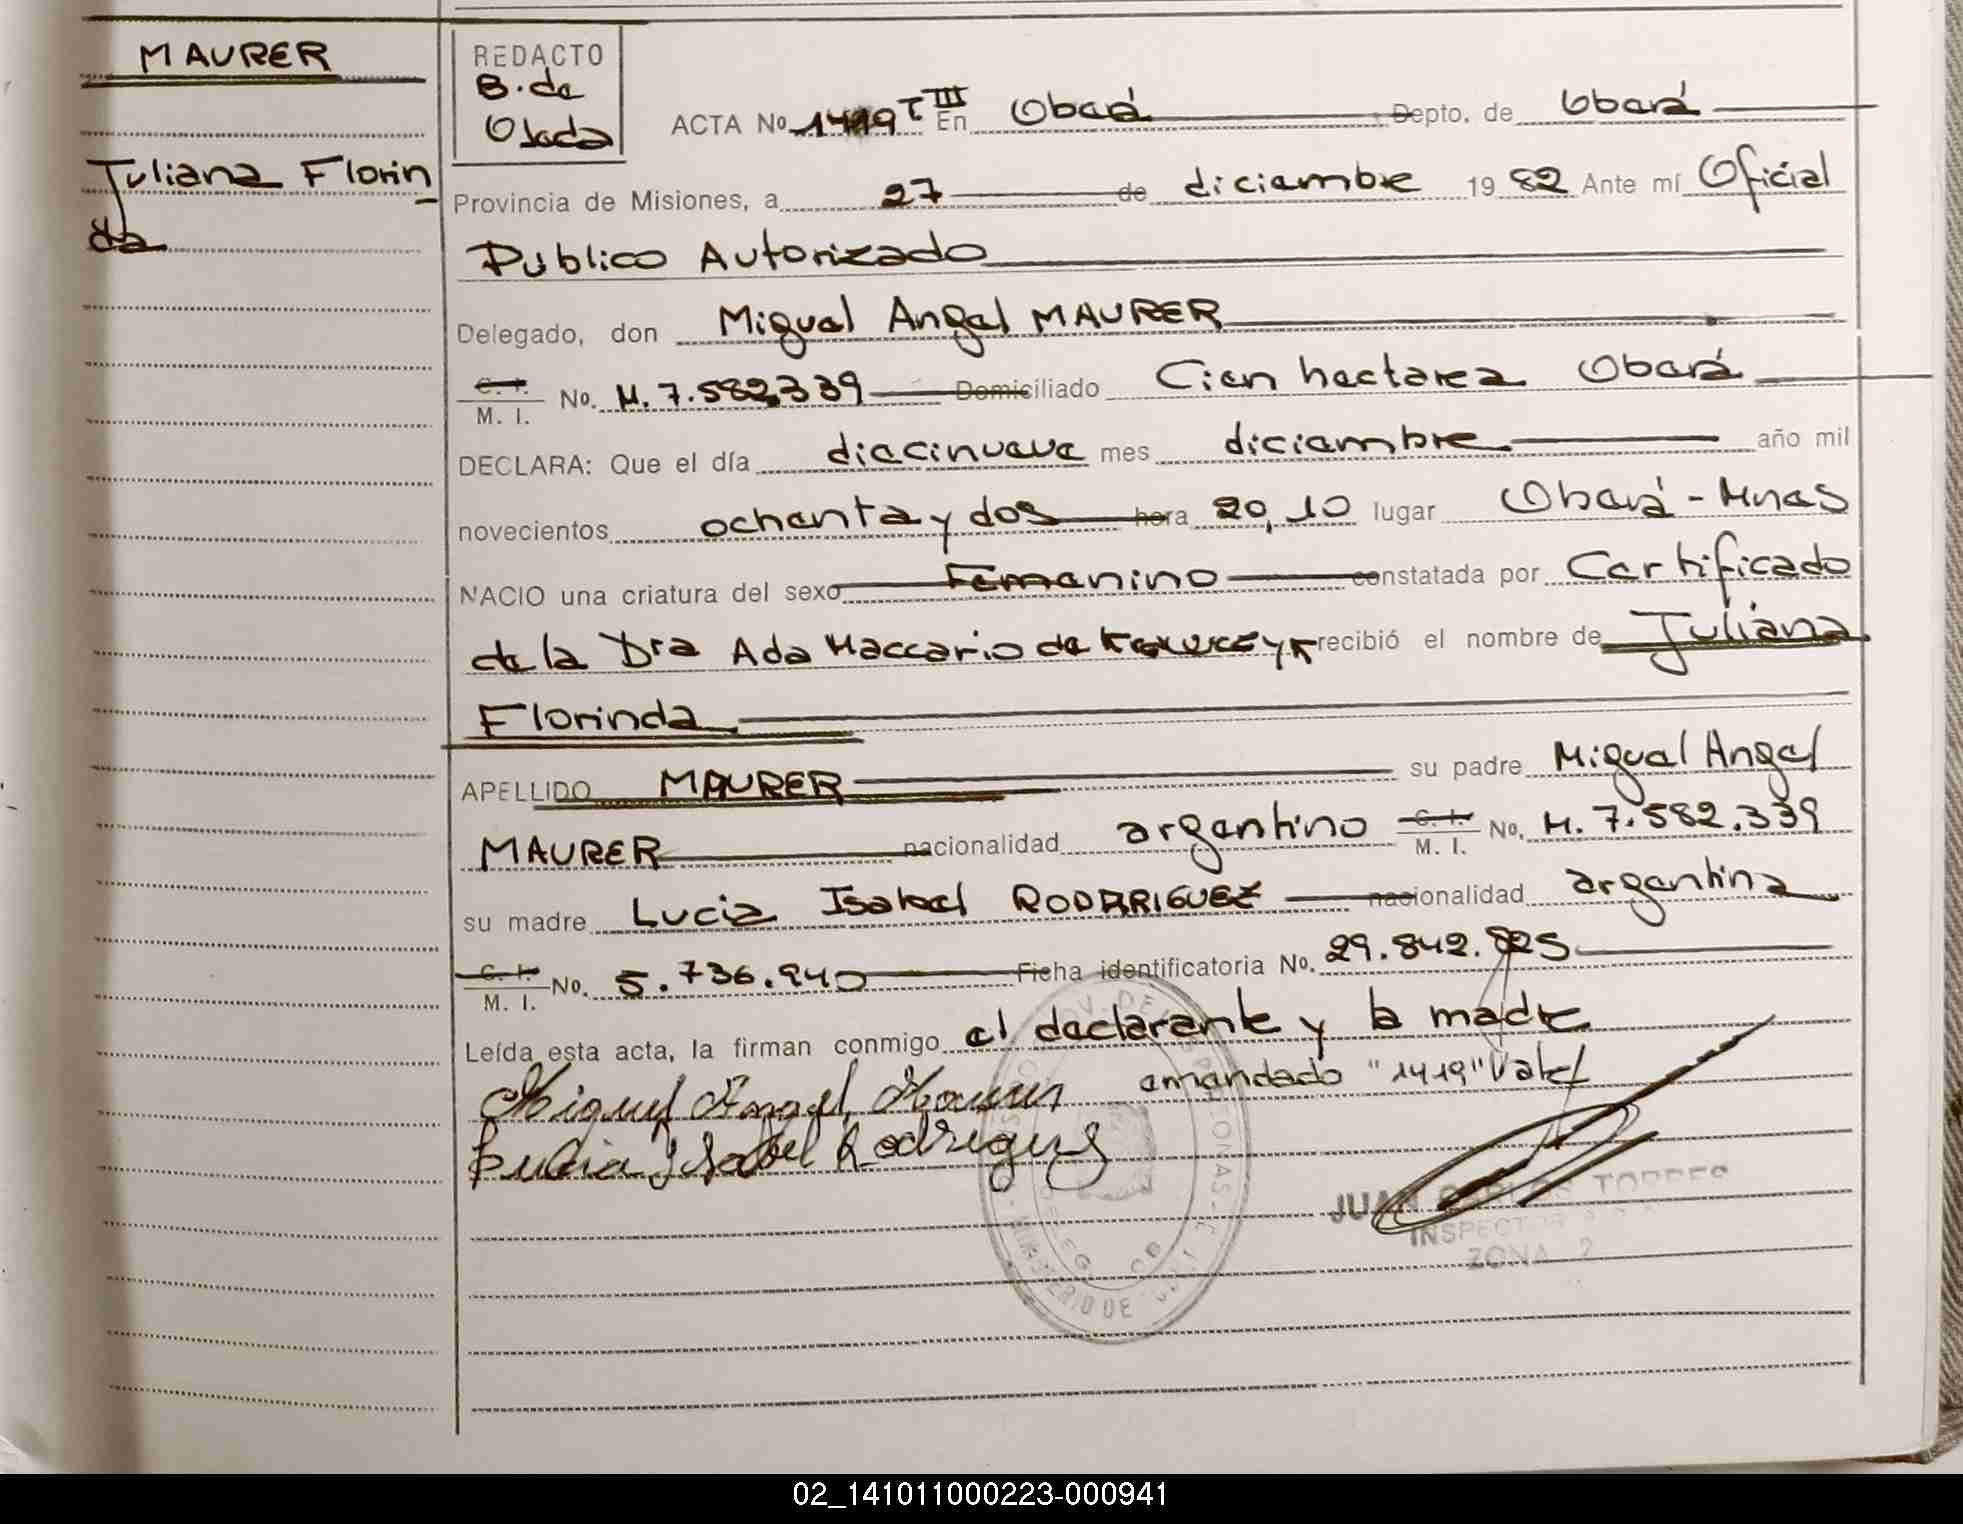 MAURER
Juliana Florin
da
REDACTO
B. de
Ojeda
ACTA No 1419 T III En Oberá Depto. de Oberá
Provincia de Misiones, a 27 de diciembre 19 82 Ante mí Oficial
Público Autorizado
Delegado, don Miguel Angel MAURER
C. I.
M. I. No. M. 7.582.339 Domiciliado Cien hectarea Oberá
DECLARA: Que el día diecinueve mes diciembre año mil
novecientos ochenta y dos hora 20,10 lugar Oberá - Mnes
NACIO una criatura del sexo Femenino constatada por Certificado
de la Dra Ada Maccario de recibió el nombre de Juliana
Florinda
APELLIDO MAURER su padre Miguel Angel
MAURER nacionalidad argentino C. I.
M. I. No. M. 7.582.339
su madre Lucia Isabel RODRRIGUEZ nacionalidad argentina
C. I.
M. I. No. 5.736.940 Ficha identificatoria No. 29.842.825
Leída esta acta, la firman conmigo el declarante y la madre
emendado "1419" Vale/
Miguel Angel Maurer
Lucia Isabel Rodriguez
MINISTERIO DE
JUAN CARLOS TORRES
INSPECTOR
ZONA 2
02_141011000223-000941